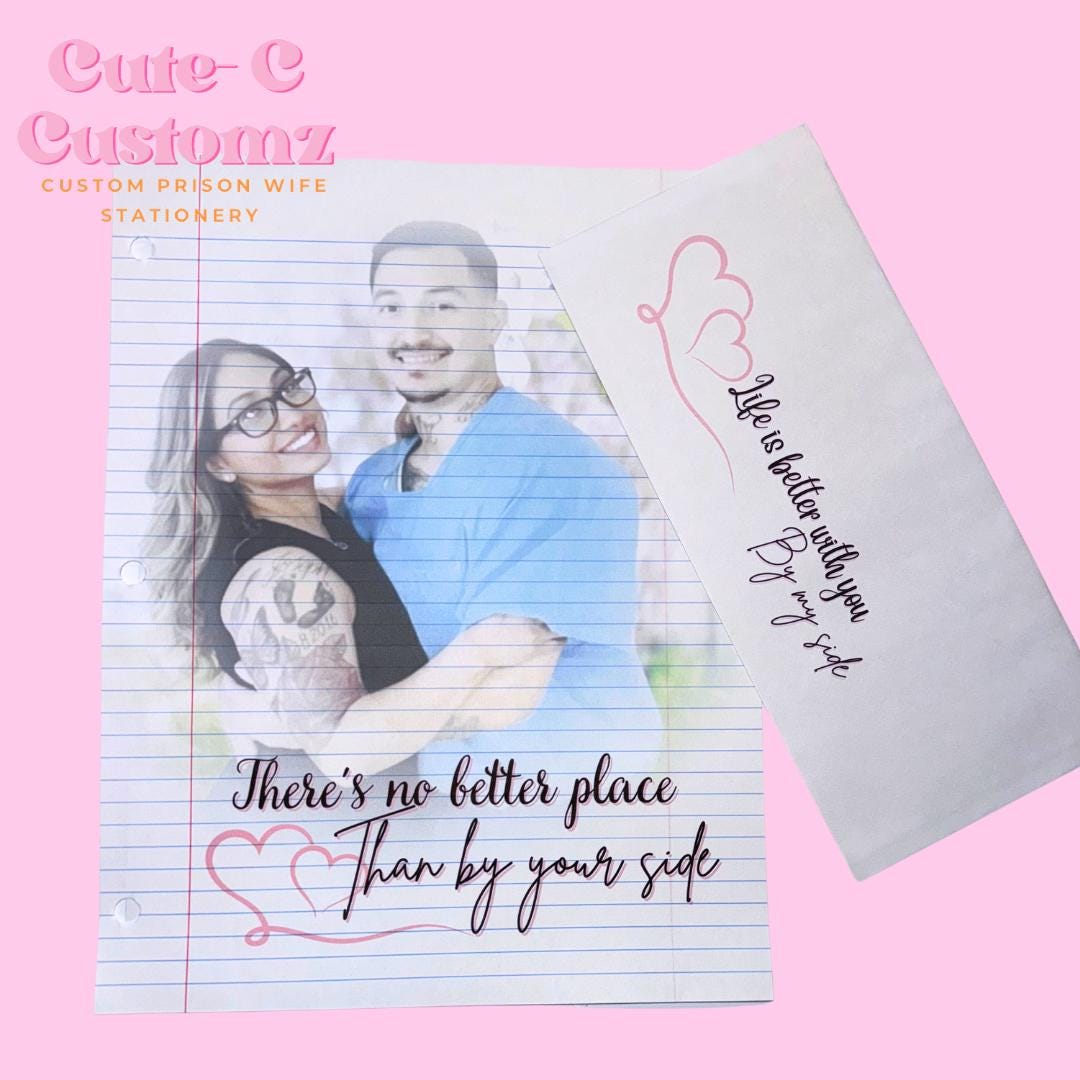 Cute- C
Customz
CUSTOM PRISON WIFE
STATIONERY
Life is better with you
By my side
There's no better place
Than by your side